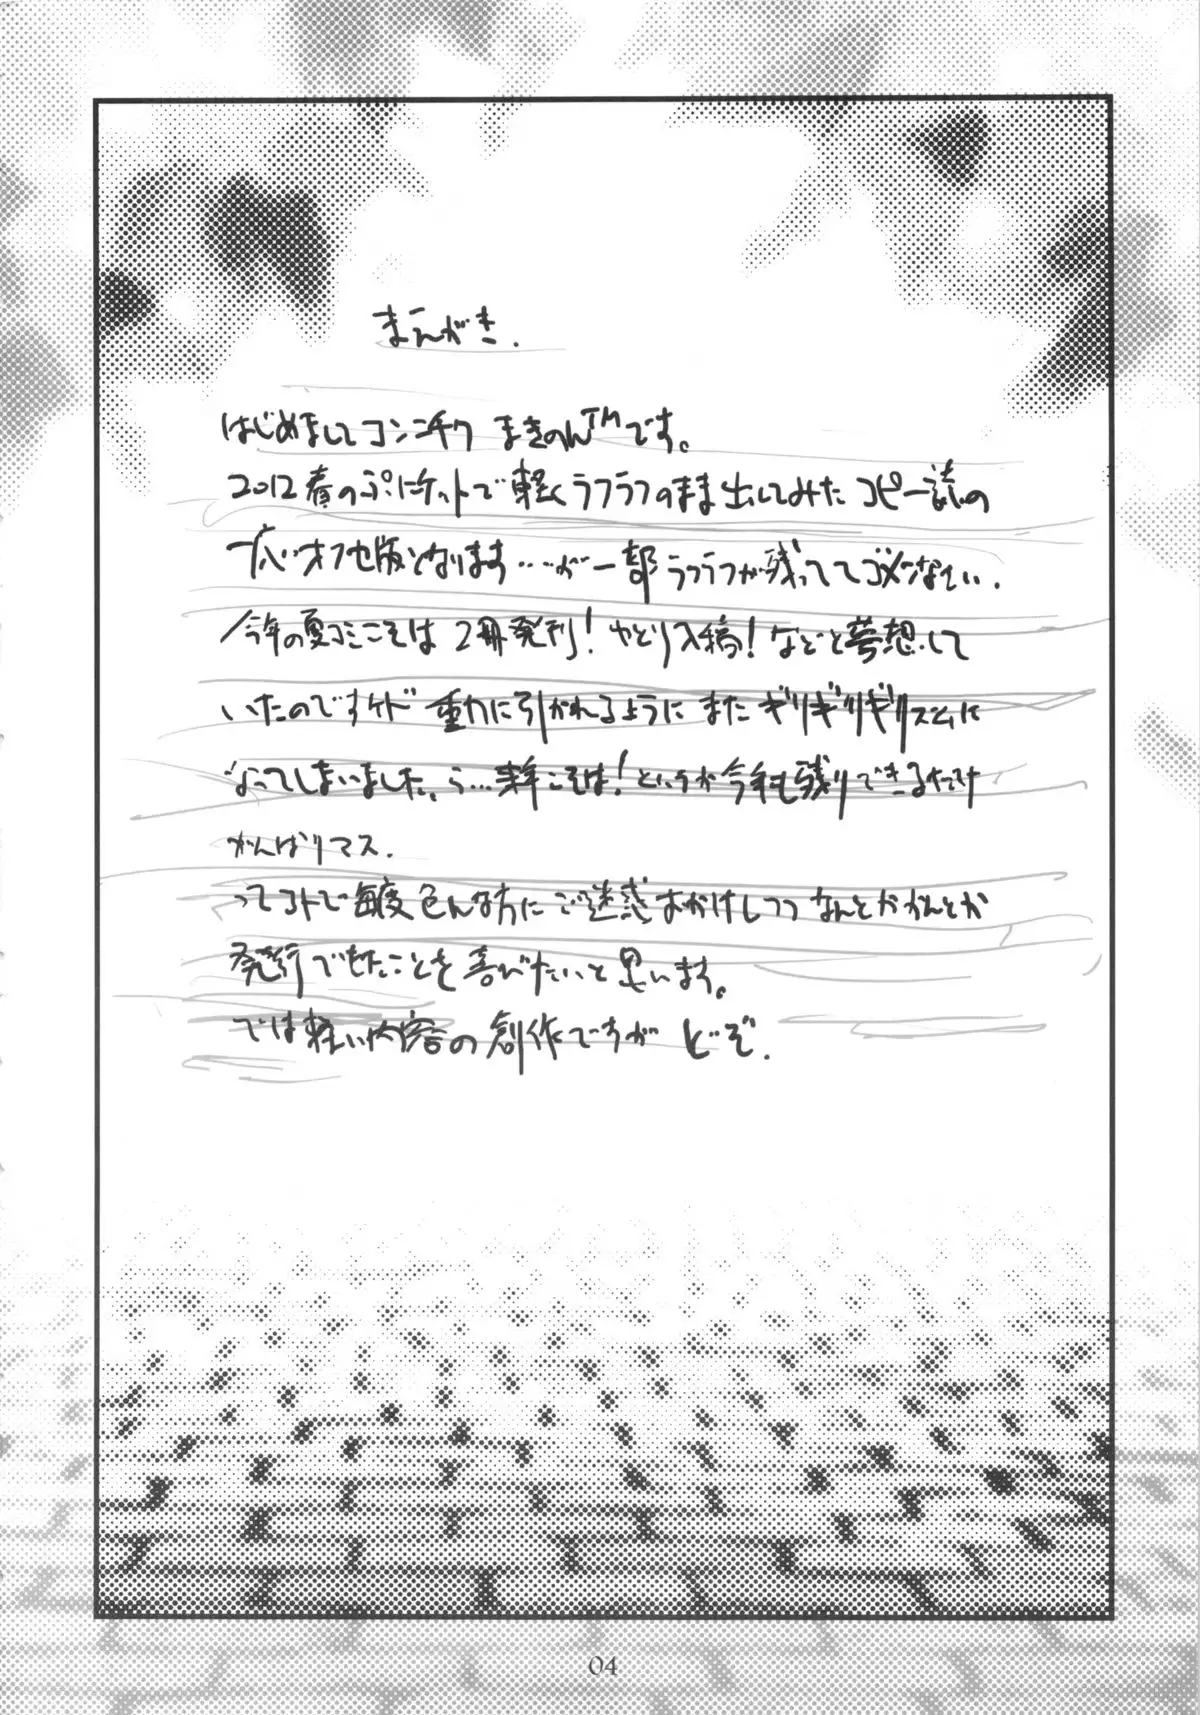 まえがき.
はじめましてコンニチワ まきのんTMです。
2012春のぷにケットで軽くラフラフのまま出してみたコピー誌の
オフセ版となります…が一部ラフラフが残っててゴメンなさい.
今年の夏コミこそは2冊発刊! ゆとり入稿! などと夢想して
いたのですけド 重力に引かれるように またギリギリギリズムに
なってしまいました. ら…来年こそは! というか今年も残りできるだけ
がんばりマス.
ってコトで毎度色んな方にご迷惑おかけしつつなんとかかんとか
発行できたことを喜びたいと思います。
では軽い内容の創作ですが どぞ.
04